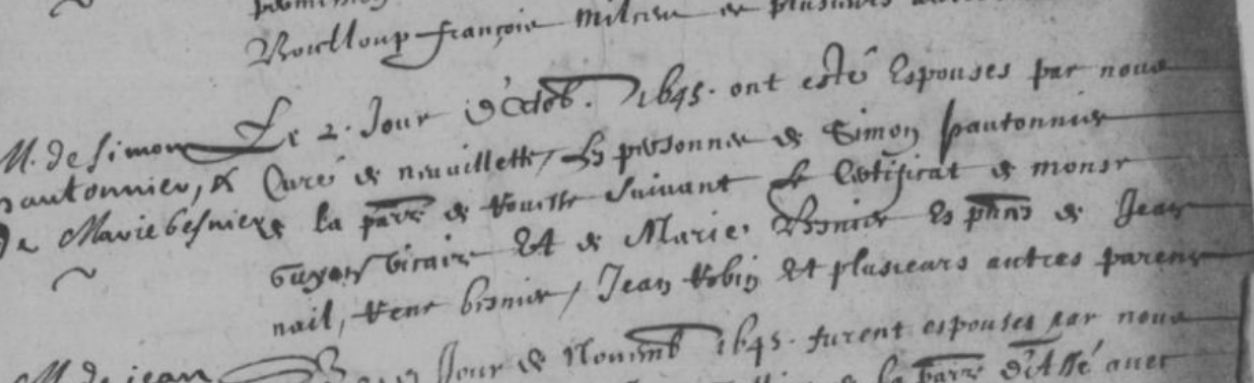 françois
M. de simon
pautonnier, &
de Marie besniere
Le 2. Jour d'Octob. 1645. ont esté Espousés par nous
Curé de neuvillette, Les personnes de Simon pautonnier
de la parr de suivant Le Certificat de monsr
guyon vicaire Et de Marie besnier Es pñs de Jean
nail, René besnier, Jean Robin Et plusieurs autres parens
M. de jean
Jour de Novemb 1645. furent espousés par nous
la parr d'Assé avec